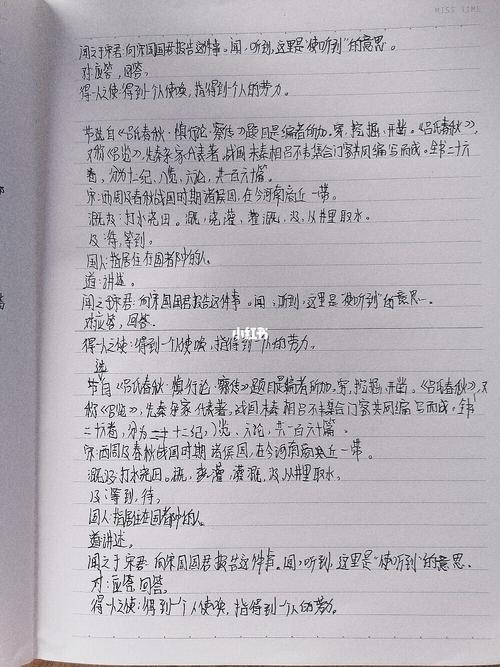 MISS TIME
闻之于宋君:向宋国国君报告这件事。闻,听到,这里是"使听到"的意思。
对:应答,回答。
得一人之使:得到一个人使唤,指得到一个人的劳力。
节选自《吕氏春秋·慎行论·察传》题目是编者所加。穿,挖掘,开凿。《吕氏春秋》,
又称《吕览》,先秦杂家代表著,战国末秦相吕不韦集合门客共同编写而成。全书二十六
卷,分为十二纪,八览,六论,共一百六十篇。
宋:西周及春秋战国时期诸侯国,在今河南商丘一带。
溉汲:打水浇田。溉,浇灌,灌溉,汲,从井里取水。
及:待,等到。
国人:指居住在国都中的人。
道:讲述。
闻之于宋君:向宋国国君报告这件事。闻,听到,这里是"使听到"的意思.
对:应答,回答.
得一人之使:得到一个人使唤,指得到一个人的劳力。
小红书
选
节自《吕氏春秋·慎行论·察传》题目是编者所加。穿,挖掘,开凿。《吕氏春秋》,又
称《吕览》,先秦杂家代表著,战国末秦相吕不韦集合门客共同编写而成,全书
二十六卷,分为十二纪,八览,六论,共一百六十篇。
宋:西周及春秋战国时期诸侯国,在今河南商丘一带。
溉汲:打水浇田。溉,浇灌,灌溉,汲,从井里取水。
及:等到,待。
国人:指居住在国都中的人。
道:讲述。
闻之于宋君:向宋国国君报告这件事。闻,听到,这里是"使听到"的意思.
对:应答,回答。
得一人之使:得到一个人使唤,指得到一个人的劳力。